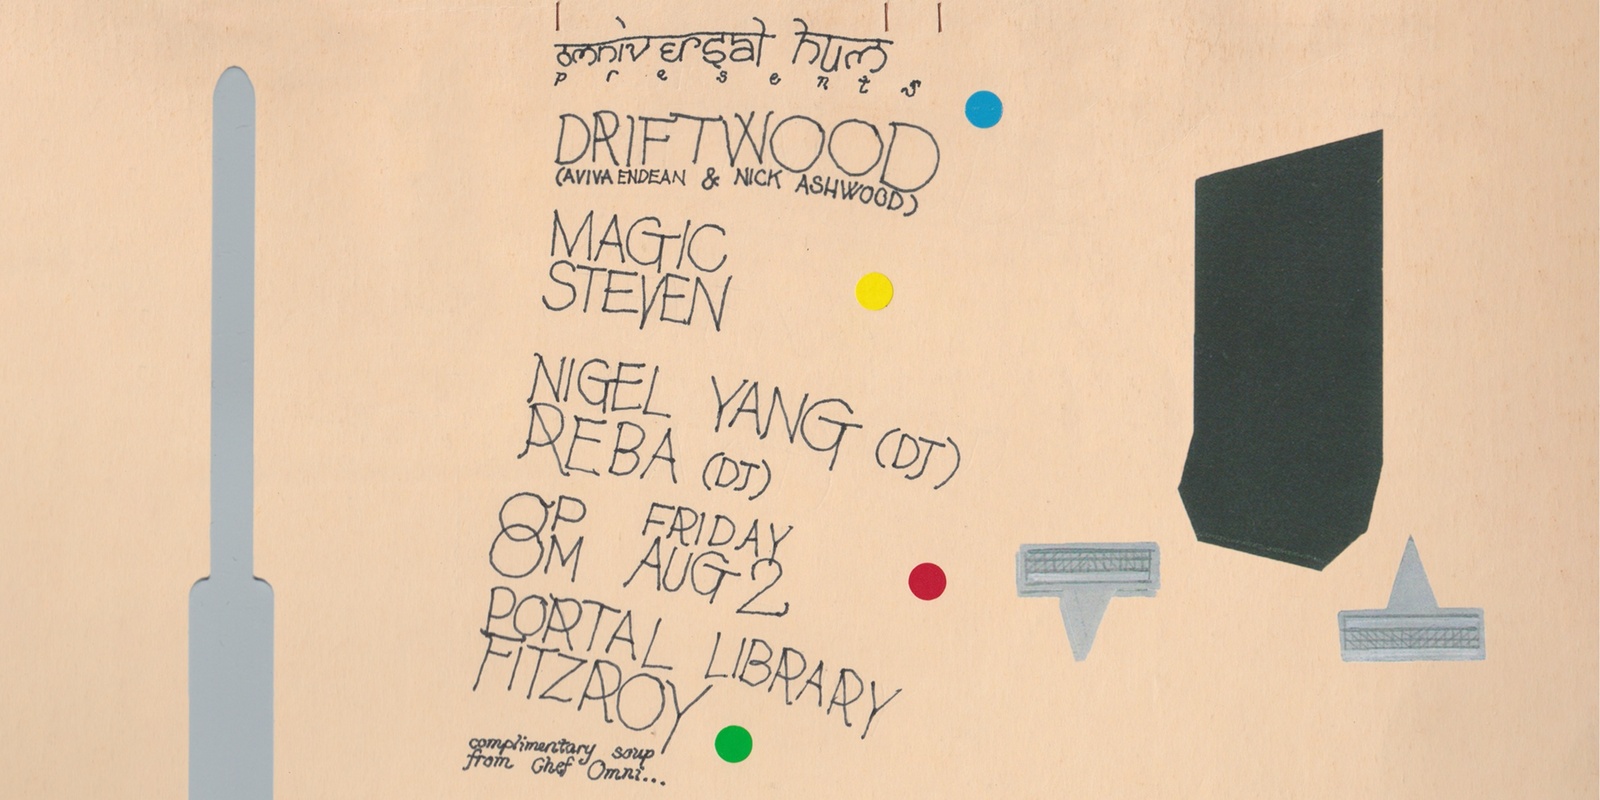 omniversal hum
presents
DRIFTWOOD
(AVIVA ENDEAN & NICK ASHWOOD)
MAGIC
STEVEN
NIGEL YANG (DJ)
REBA (DJ)
8PM FRIDAY
AUG 2
PORTAL LIBRARY
FITZROY
complimentary soup
from Chef Omni...